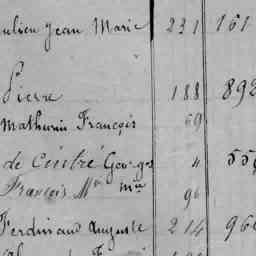 ulien Jean Marie 231 161
Pierre 188 892
Mathurin François 59
de Cintré Georges 4 559
François Mie Mie 96
Ferdinand Auguste 214 960